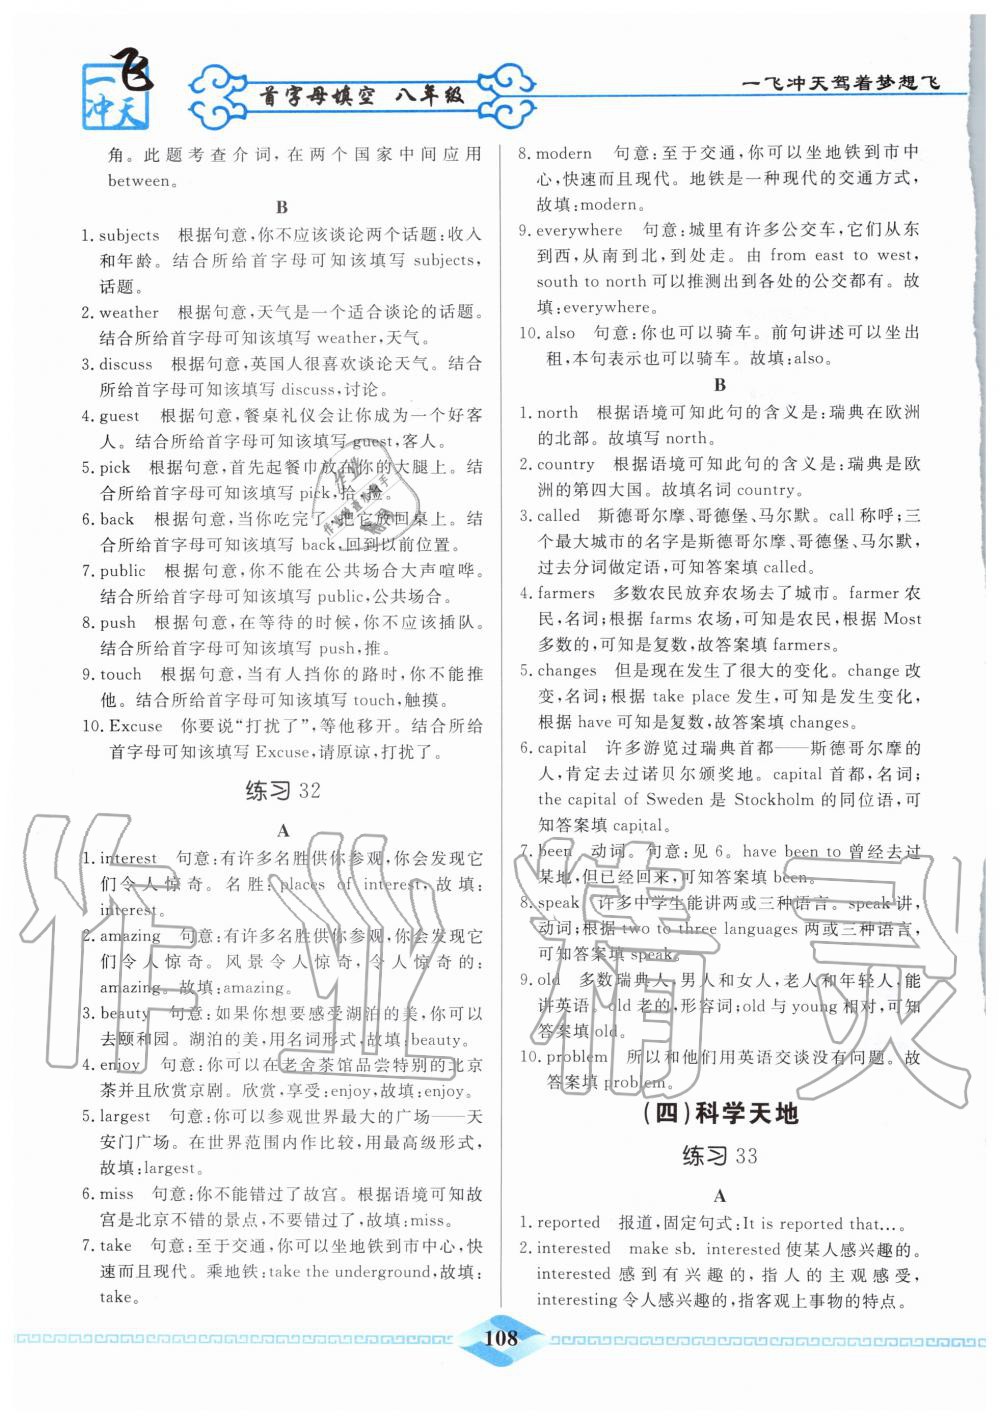 一飞冲天
首字母填空 八年级
一飞冲天驾着梦想飞
角。此题考查介词,在两个国家中间应用
between。
B
1. subjects 根据句意,你不应该谈论两个话题:收入
和年龄。结合所给首字母可知该填写 subjects,
话题。
2. weather 根据句意,天气是一个适合谈论的话题。
结合所给首字母可知该填写 weather,天气。
3. discuss 根据句意,英国人很喜欢谈论天气。结合
所给首字母可知该填写 discuss,讨论。
4. guest 根据句意,餐桌礼仪会让你成为一个好客
人。结合所给首字母可知该填写 guest,客人。
5. pick 根据句意,首先起餐巾放在你的大腿上。结
合所给首字母可知该填写 pick,拾,捡。
6. back 根据句意,当你吃完了,把它放回桌上。结
合所给首字母可知该填写 back,回到以前位置。
7. public 根据句意,你不能在公共场合大声喧哗。
结合所给首字母可知该填写 public,公共场合。
8. push 根据句意,在等待的时候,你不应该插队。
结合所给首字母可知该填写 push,推。
9. touch 根据句意,当有人挡你的路时,你不能推
他。结合所给首字母可知该填写 touch,触摸。
10. Excuse 你要说“打扰了”,等他移开。结合所给
首字母可知该填写 Excuse,请原谅,打扰了。
练习 32
A
1. interest 句意:有许多名胜供你参观,你会发现它
们令人惊奇。名胜:places of interest,故填:
interest。
2. amazing 句意:有许多名胜供你参观,你会发现它
们令人惊奇。风景令人惊奇,令人惊奇的:
amazing。故填:amazing。
3. beauty 句意:如果你想要感受湖泊的美,你可以
去颐和园。湖泊的美,用名词形式,故填:beauty。
4. enjoy 句意:你可以在老舍茶馆品尝特别的北京
茶并且欣赏京剧。欣赏,享受:enjoy,故填:enjoy。
5. largest 句意:你可以参观世界最大的广场——天
安门广场。在世界范围内作比较,用最高级形式,
故填:largest。
6. miss 句意:你不能错过了故宫。根据语境可知故
宫是北京不错的景点,不要错过,故填:miss。
7. take 句意:至于交通,你可以坐地铁到市中心,快
速而且现代。乘地铁:take the underground,故填:
take。
8. modern 句意:至于交通,你可以坐地铁到市中
心,快速而且现代。地铁是一种现代的交通方式,
故填:modern。
9. everywhere 句意:城里有许多公交车,它们从东
到西,从南到北,到处走。由 from east to west,
south to north 可以推测出到各处的公交都有。故
填:everywhere。
10. also 句意:你也可以骑车。前句讲述可以坐出
租,本句表示也可以骑车。故填:also。
B
1. north 根据语境可知此句的含义是:瑞典在欧洲
的北部。故填写 north。
2. country 根据语境可知此句的含义是:瑞典是欧
洲的第四大国。故填名词 country。
3. called 斯德哥尔摩、哥德堡、马尔默。call 称呼;三
个最大城市的名字是斯德哥尔摩、哥德堡、马尔默,
过去分词做定语,可知答案填 called。
4. farmers 多数农民放弃农场去了城市。farmer 农
民,名词;根据 farms 农场,可知是农民,根据 Most
多数的,可知是复数,故答案填 farmers。
5. changes 但是现在发生了很大的变化。change 改
变,名词;根据 take place 发生,可知是发生变化,
根据 have 可知是复数,故答案填 changes。
6. capital 许多游览过瑞典首都——斯德哥尔摩的
人,肯定去过诺贝尔颁奖地。capital 首都,名词;
the capital of Sweden 是 Stockholm 的同位语,可
知答案填 capital。
7. been 动词。句意:见 6。have been to 曾经去过
某地,但已经回来,可知答案填 been。
8. speak 许多中学生能讲两或三种语言。speak 讲,
动词;根据 two to three languages 两或三种语言,
可知答案填 speak。
9. old 多数瑞典人,男人和女人,老人和年轻人,能
讲英语。old 老的,形容词;old 与 young 相对,可知
答案填 old。
10. problem 所以和他们用英语交谈没有问题。故
答案填 problem。
(四)科学天地
练习 33
A
1. reported 报道,固定句式:It is reported that…。
2. interested make sb. interested 使某人感兴趣的。
interested 感到有兴趣的,指人的主观感受,
interesting 令人感兴趣的,指客观上事物的特点。
108
作业精灵